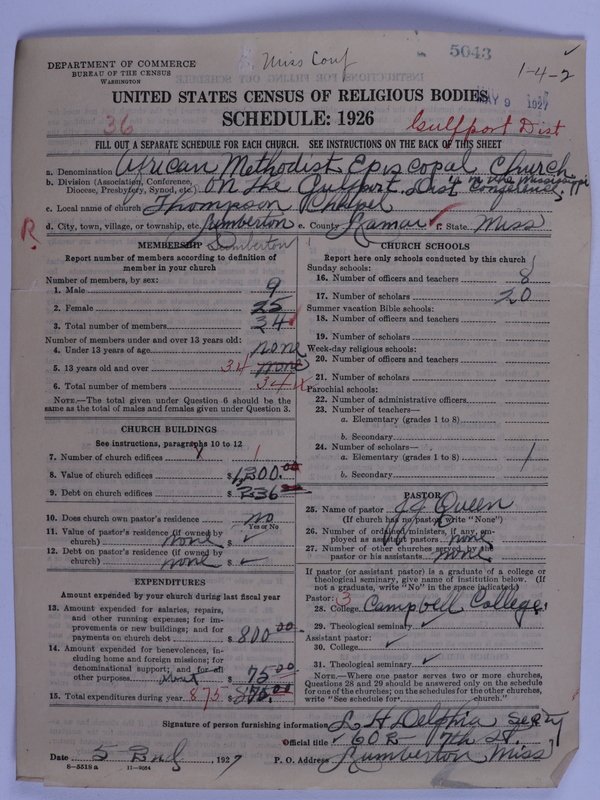 DEPARTMENT OF COMMERCE
BUREAU OF THE CENSUS
WASHINGTON
Miss Conf
5043
1-4-2
MAY 9 1927
UNITED STATES CENSUS OF RELIGIOUS BODIES
SCHEDULE: 1926
36
Gulfport Dist
FILL OUT A SEPARATE SCHEDULE FOR EACH CHURCH. SEE INSTRUCTIONS ON THE BACK OF THIS SHEET
a. Denomination African Methodist Episcopal Church
b. Division (Association, Conference, Diocese, Presbytery, Synod, etc.) on the Gulfport Dist in the Mississippi Conference
c. Local name of church Thompson Chapel
R
d. City, town, village, or township, etc. Lumberton e. County Lamar f. State Miss
Lumberton
MEMBERSHIP
Report number of members according to definition of
member in your church
Number of members, by sex:
1. Male 9
2. Female 25
3. Total number of members 34
Number of members under and over 13 years old:
4. Under 13 years of age none
5. 13 years old and over 34 none
6. Total number of members 34
NOTE.—The total given under Question 6 should be the
same as the total of males and females given under Question 3.
CHURCH BUILDINGS
See instructions, paragraphs 10 to 12
7. Number of church edifices 1
8. Value of church edifices $1,300.00
9. Debt on church edifices $336
10. Does church own pastor's residence no
Yes or No
11. Value of pastor's residence (if owned by
church) none $
12. Debt on pastor's residence (if owned by
church) none $
EXPENDITURES
Amount expended by your church during last fiscal year
13. Amount expended for salaries, repairs,
and other running expenses; for im-
provements or new buildings; and for
payments on church debt $ 800.00
14. Amount expended for benevolences, in-
cluding home and foreign missions; for
denominational support; and for all
other purposes $ 75.00
15. Total expenditures during year 875 $ 875.00
CHURCH SCHOOLS
Report here only schools conducted by this church
Sunday schools:
16. Number of officers and teachers 8
17. Number of scholars 20
Summer vacation Bible schools:
18. Number of officers and teachers
19. Number of scholars
Week-day religious schools:
20. Number of officers and teachers
21. Number of scholars
Parochial schools:
22. Number of administrative officers
23. Number of teachers—
a. Elementary (grades 1 to 8)
b. Secondary
24. Number of scholars—
a. Elementary (grades 1 to 8)
b. Secondary
PASTOR
25. Name of pastor J J Queen
(If church has no pastor, write "None")
26. Number of ordained ministers, if any, em-
ployed as assistant pastors none
27. Number of other churches served by the
pastor or his assistants none
If pastor (or assistant pastor) is a graduate of a college or
theological seminary, give name of institution below. (If
not a graduate, write "No" in the space indicated.)
Pastor: 3
28. College Campbell College
29. Theological seminary
Assistant pastor:
30. College
31. Theological seminary
NOTE.—Where one pastor serves two or more churches,
Questions 28 and 29 should be answered only on the schedule
for one of the churches; on the schedules for the other churches,
write "See schedule for church."
Signature of person furnishing information L H Delphia
Official title 60 R 7th St.
Date 5 1927 P. O. Address Lumberton Miss
6-5518a 11-9084